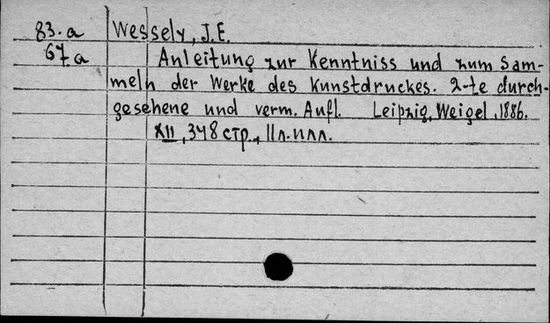 83.a Wessely, J.E.
67a Anleitung zur Kenntniss und zum Sam-
meln der Werke des Kunstdruckes. 2-te durch-
gesehene und verm. Aufl. Leipzig, Weigel, 1886.
XII, 348 стр., 11 л. илл.